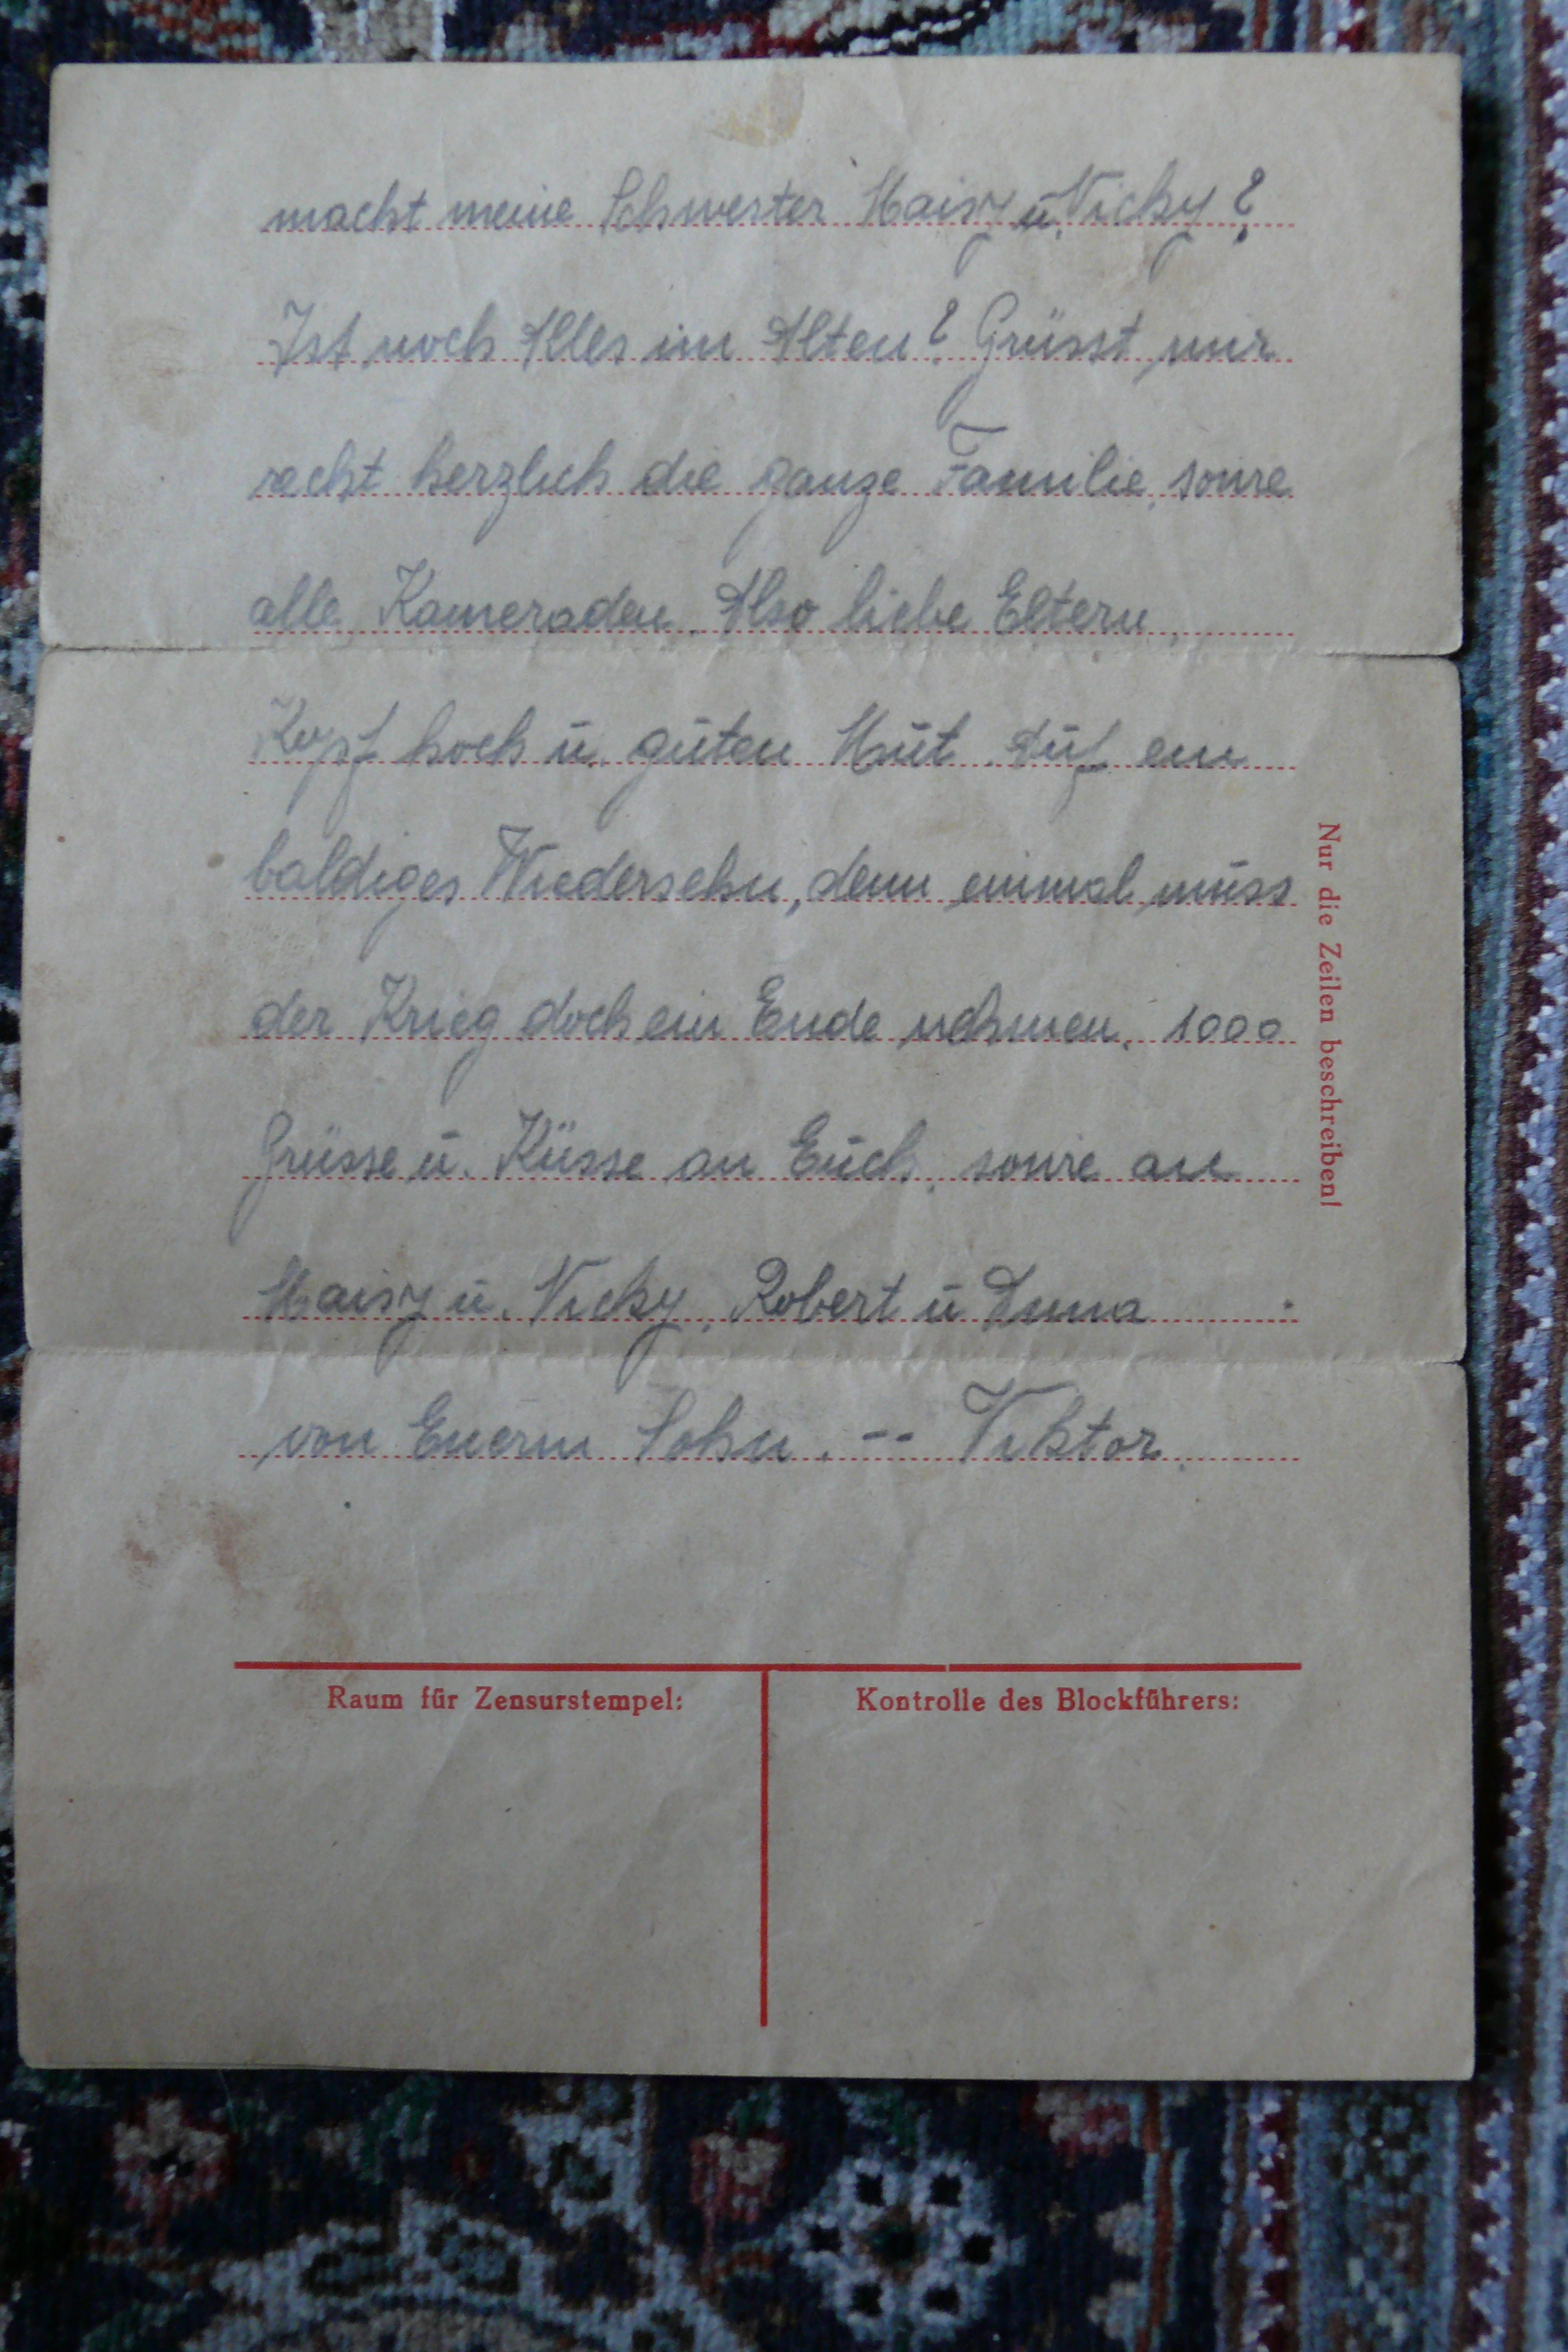 macht meine Schwester Maisy u. Vicky?
Ist noch Alles im Alten? Grüsst mir
recht herzlich die ganze Familie, sowie
alle Kameraden. Also liebe Eltern,
Kopf hoch u. guten Mut. Auf ein
baldiges Wiedersehn, denn einmal muss
der Krieg doch ein Ende nehmen. 1000
Grüsse u. Küsse an Euch, sowie an
Maisy u. Vicky, Robert u
von Euerm Sohn. -- Viktor.
Nur die Zeilen beschreiben!
Raum für Zensurstempel:
Kontrolle des Blockführers: